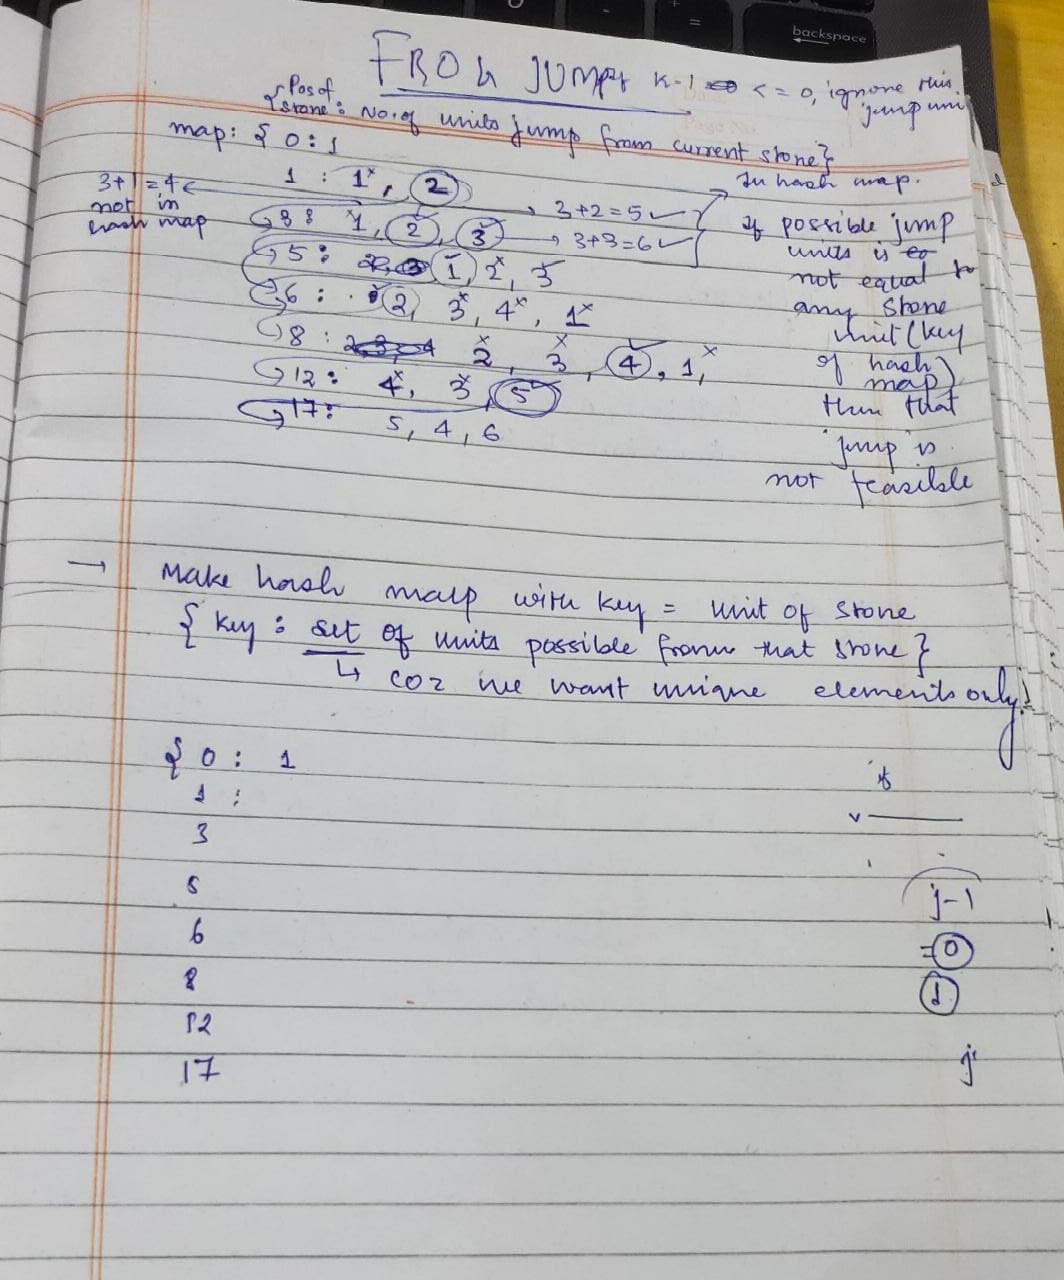 backspace
FROG JUMP
K-1 <= 0, ignore this jump unit
{ Pos of stone : No. of units jump from current stone }
map: { 0 : 1
1 : 1x, 2
3+1 = 4
not in
hash map
3 : 1x, 2, 3
3+2=5 ✓
3+3=6 ✓
In hash map.
5 : 1, 2x, 3
6 : 2, 3x, 4x, 1x
8 : 2x, 3x, 4, 1x,
12 : 4x, 3x, 5
17: 5, 4, 6
If possible jump
units is
not equal to
any stone
unit (key
of hash
map)
then that
jump is
not feasible
→ Make hash map with key = unit of stone
{ key : set of units possible from that stone }
↳ coz we want unique elements only!
{ 0 : 1
1 :
3
5
6
8
12
17
if
v
j-1
=0
1
j